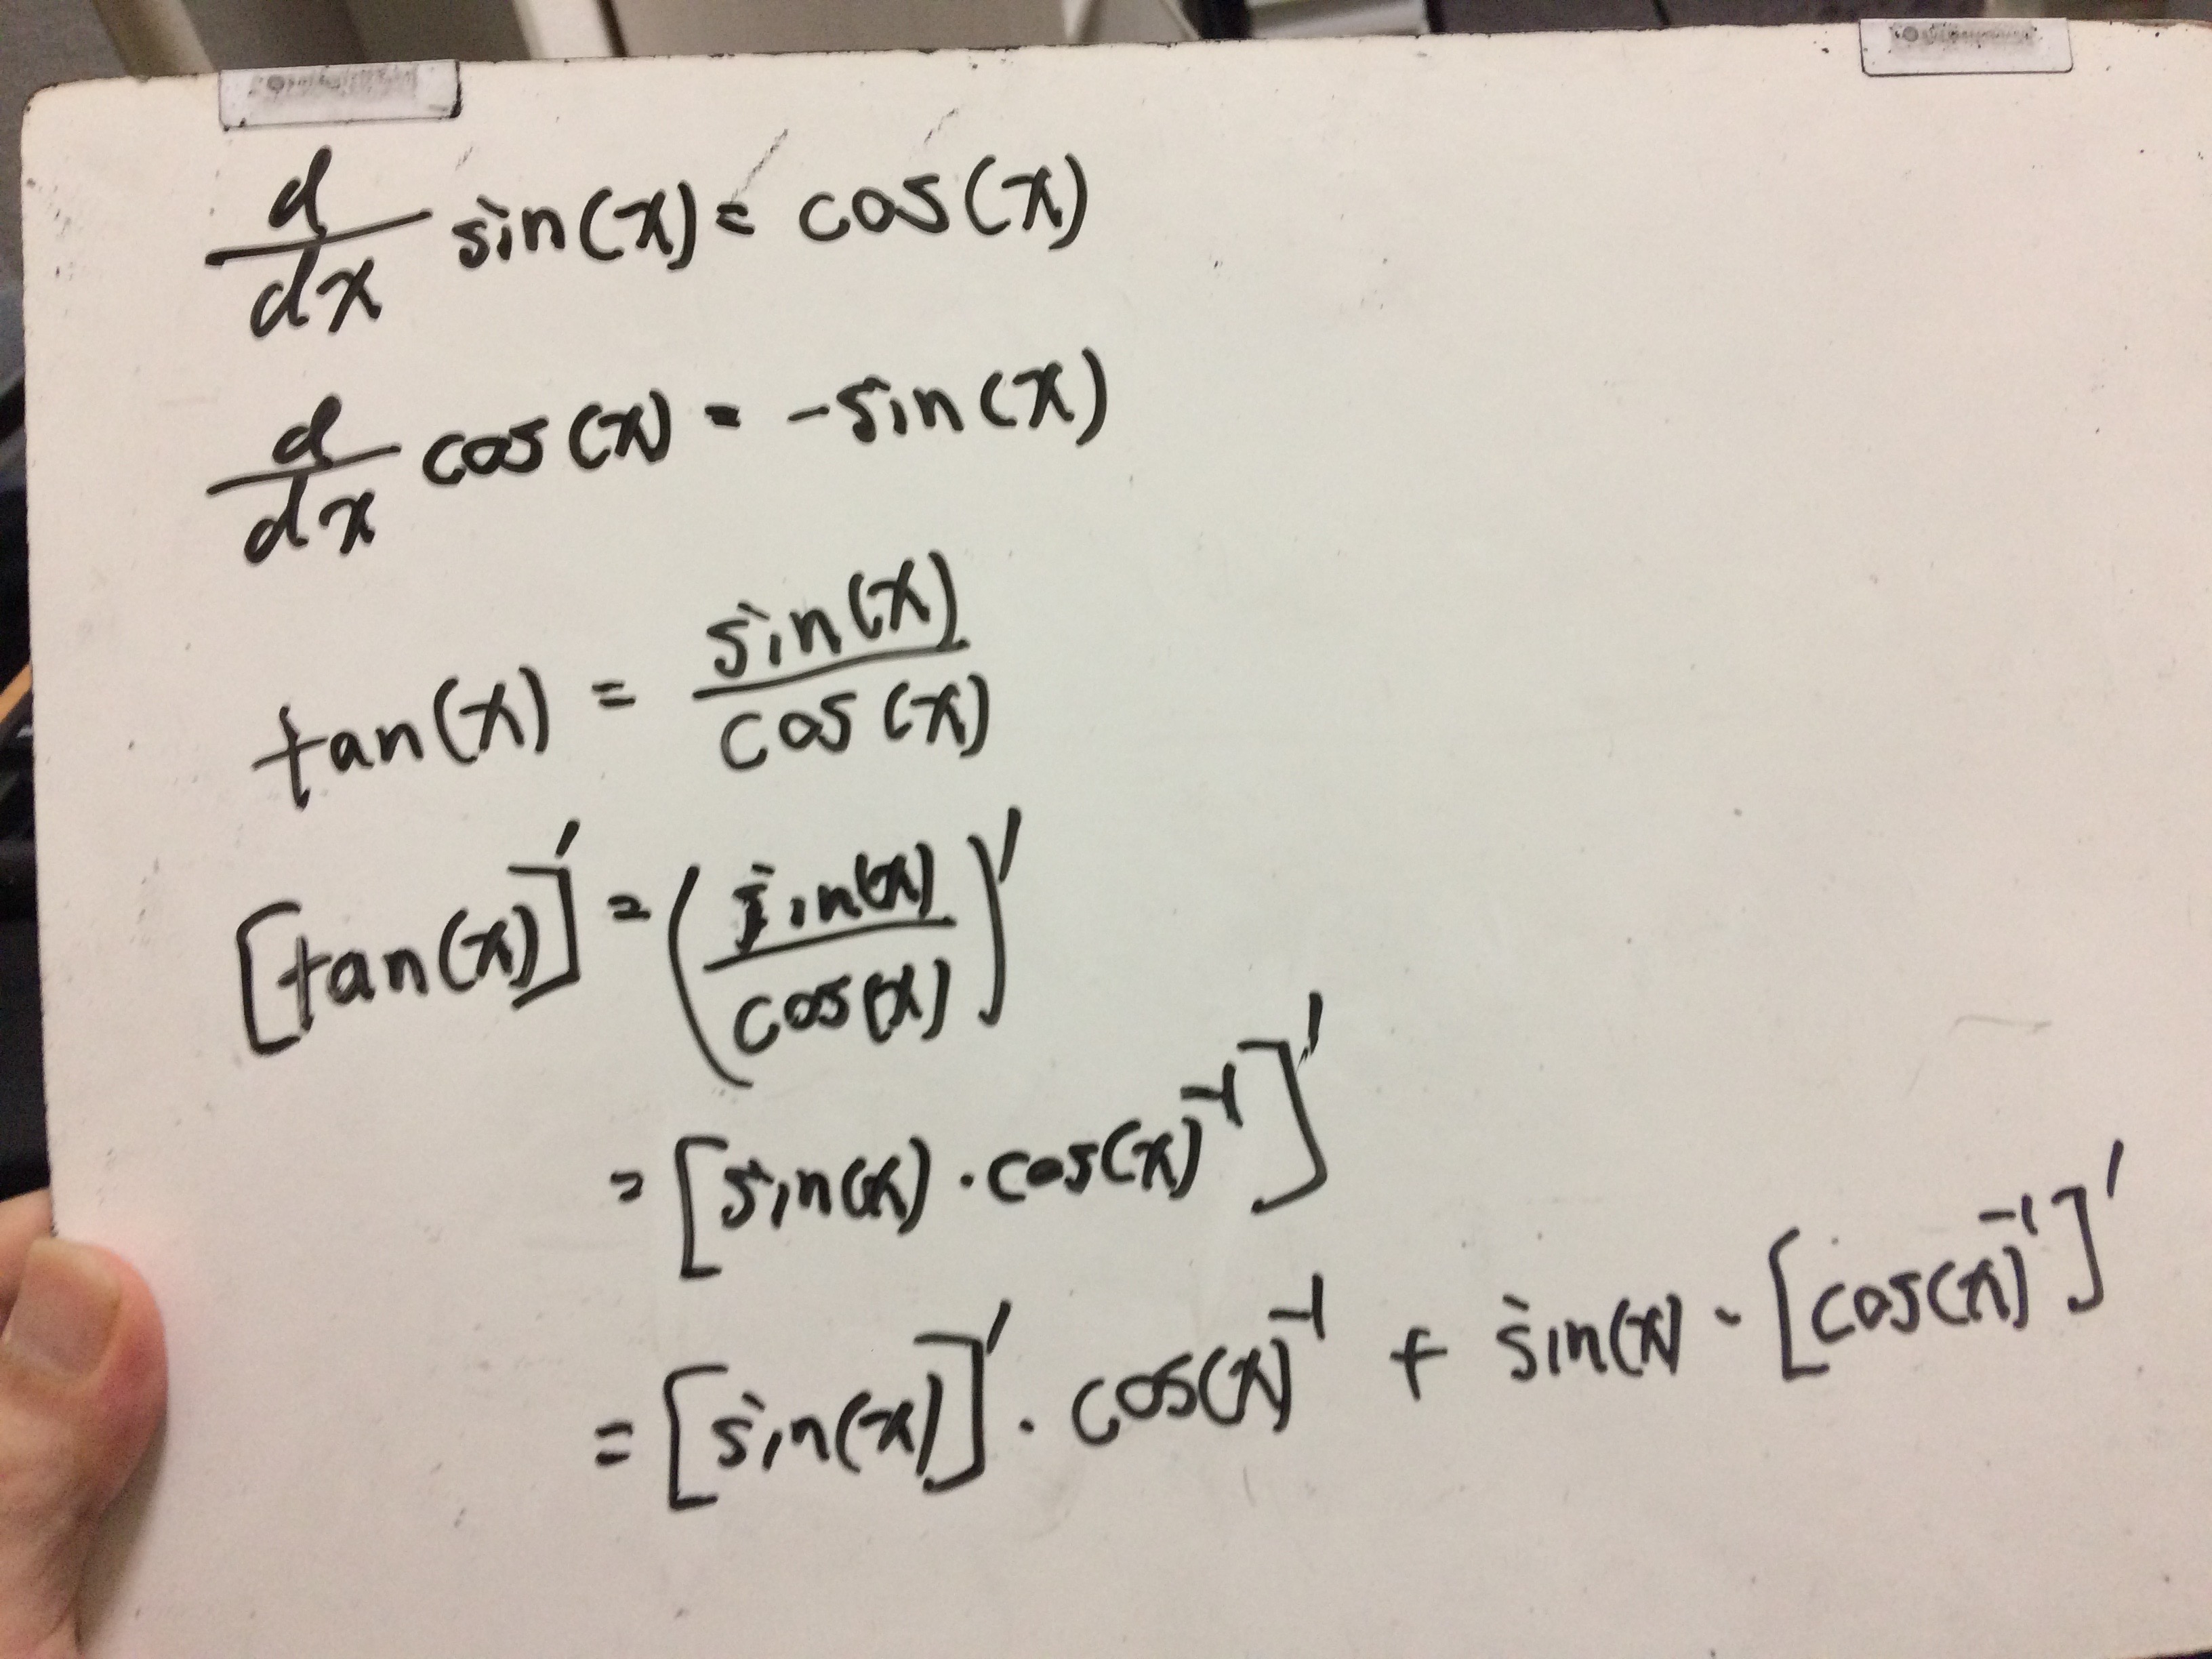 d/dx sin(x) = cos(x)
d/dx cos(x) = -sin(x)
tan(x) = sin(x)/cos(x)
[tan(x)]' = (sin(x)/cos(x))'
= [sin(x) · cos(x)⁻¹]'
= [sin(x)]' · cos(x)⁻¹ + sin(x) · [cos(x)⁻¹]'